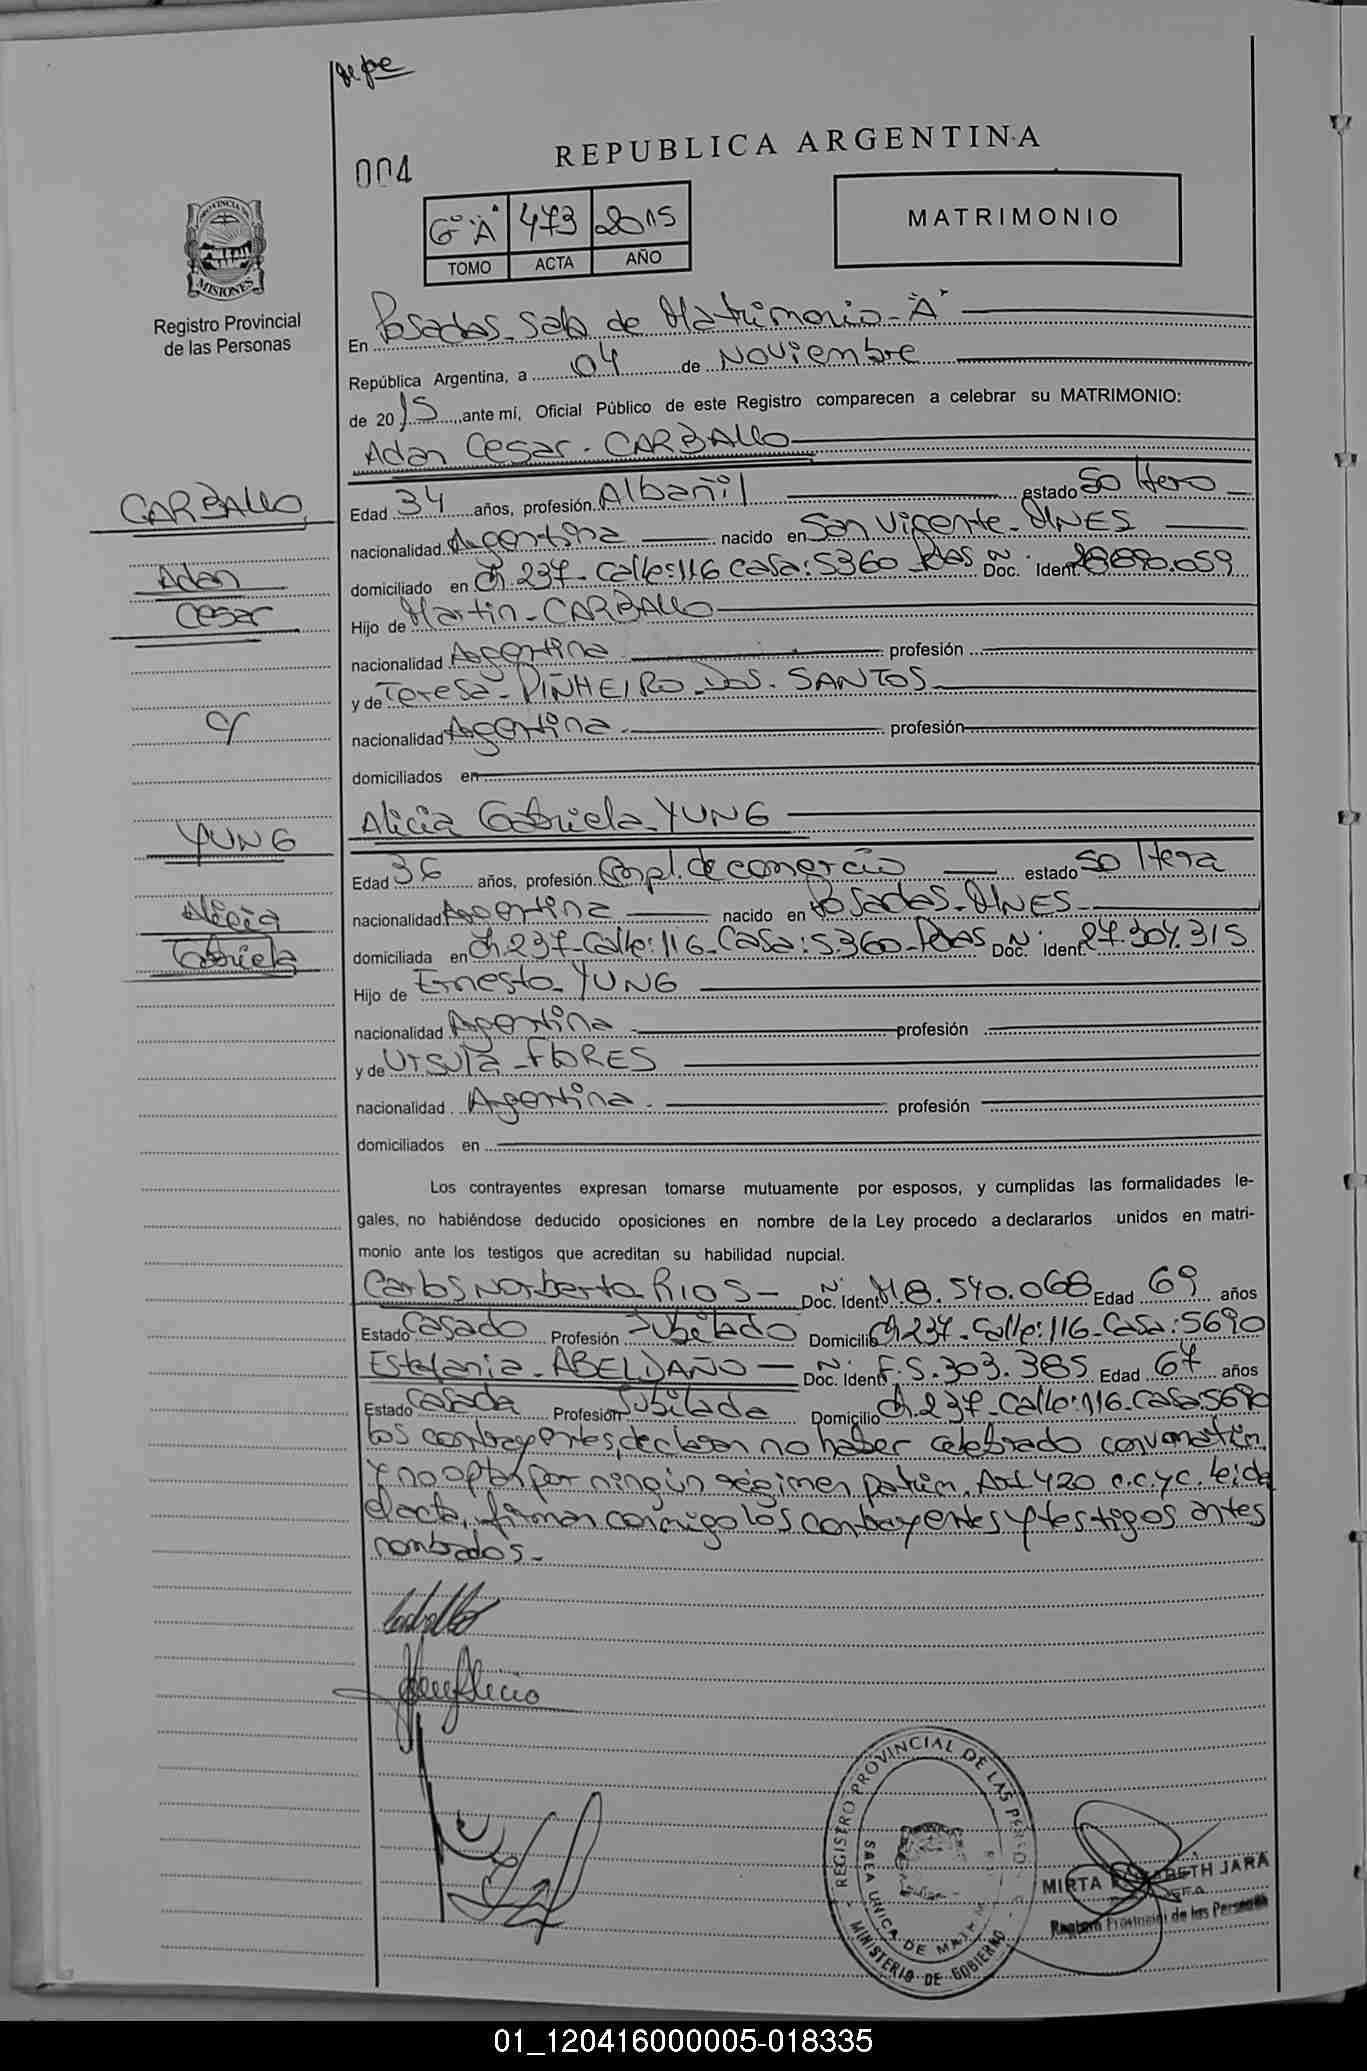 004
REPUBLICA ARGENTINA
G° "A" 473 2015
TOMO ACTA AÑO
MATRIMONIO
PROVINCIA DE
MISIONES
Registro Provincial
de las Personas
En Posadas. Sala de Matrimonio "A"
República Argentina, a 04 de Noviembre
de 2015, ante mí, Oficial Público de este Registro comparecen a celebrar su MATRIMONIO:
Adan Cesar. CARBALLO
CARBALLO,
Adan
Cesar
Edad 34 años, profesión Albañil estado Soltero
nacionalidad Argentina nacido en San Vicente - MNES
domiciliado en Ch. 237 - Calle: 116 casa: 5360 - Pdas N° Doc. Ident. 28.890.059
Hijo de Martin - CARBALLO
nacionalidad Argentina profesión
y de Teresa - PIÑHEIRO - DOS - SANTOS
c/
nacionalidad Argentina profesión
domiciliados en
Alicia Gabriela YUNG
YUNG
Alicia
Gabriela
Edad 36 años, profesión Empl. de comercio estado Soltera
nacionalidad Argentina nacido en Posadas - MNES
domiciliada en Ch. 237 - Calle: 116 - Casa: 5360 - Pdas N° Doc. Ident. 27.304.315
Hijo de Ernesto - YUNG
nacionalidad Argentina profesión
y de Ursula - FLORES
nacionalidad Argentina profesión
domiciliados en
Los contrayentes expresan tomarse mutuamente por esposos, y cumplidas las formalidades le-
gales, no habiéndose deducido oposiciones en nombre de la Ley procedo a declararlos unidos en matri-
monio ante los testigos que acreditan su habilidad nupcial.
Carlos Norberto RIOS - N° Doc. Ident M 8.540.068 Edad 69 años
Estado Casado Profesión Jubilado Domicilio Ch 237 - Calle: 116 - Casa: 5690
Estefania - ABELDAÑO - N° Doc. Ident F. 5.303.385 Edad 67 años
Estado Casada Profesión Jubilada Domicilio Ch. 237 - Calle: 116 - Casa: 5690
Los contrayentes, declaran no haber celebrado conv. matrim.
y no optan por ningún régimen patrim. Art 420 c.c.yc. Leida
el acta, firman conmigo los contrayentes y testigos antes
nombrados.-
Carballo
REGISTRO PROVINCIAL DE LAS PERSO
SALA UNICA DE MATRIM
MINISTERIO DE GOBIERNO
MIRTA JARA
JEFA
Registro Provincial de las Personas
01_120416000005-018335